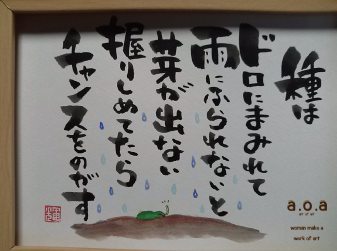 種は
ドロにまみれて
雨にふられないと
芽が出ない
握りしめてたら
チャンスをのがす
a.o.a
art of art
women make a
work of art